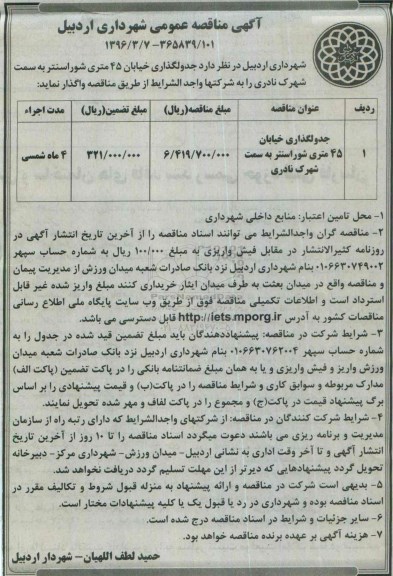 آگهی مناقصه عمومی شهرداری اردبیل
۳۶۵۸۳۹/۱۰۱-۱۳۹۶/۳/۷
شهرداری اردبیل در نظر دارد جدولگذاری خیابان ۴۵ متری شورا سنتر به سمت
شهرک نادری را به شرکتها واجد الشرایط از طریق مناقصه واگذار نماید:
ردیف عنوان مناقصه مبلغ مناقصه(ریال) مبلغ تضمین(ریال) مدت اجراء
۱ جدولگذاری خیابان ۶/۴۱۹/۷۰۰/۰۰۰ ۳۲۱/۰۰۰/۰۰۰ ۴ ماه شمسی
۴۵ متری شورا سنتر به سمت
شهرک نادری
۱- محل تامین اعتبار: منابع داخلی شهرداری
۲- مناقصه گران واجدالشرایط می توانند اسناد مناقصه را از آخرین تاریخ انتشار آگهی در
روزنامه کثیرالانتشار در مقابل فیش واریزی به مبلغ ۱۰۰/۰۰۰ ریال به شماره حساب سپهر
۰۱۰۶۶۳۰۷۴۹۰۰۲ بنام شهرداری اردبیل نزد بانک صادرات شعبه میدان ورزش از مدیریت پیمان
و مناقصه واقع در میدان بعثت به طرف میدان ایثار خریداری کنند مبلغ واریز شده غیر قابل
استرداد است و اطلاعات تکمیلی مناقصه فوق از طریق وب سایت پایگاه ملی اطلاع رسانی
مناقصات کشور به آدرس http://iets.mporg.ir قابل دسترسی می باشد.
۳- شرایط شرکت در مناقصه: پیشنهاددهندگان باید مبلغ تضمین قید شده در جدول را به
شماره حساب سپهر ۰۱۰۶۶۳۰۷۶۲۰۰۴ بنام شهرداری اردبیل نزد بانک صادرات شعبه میدان
ورزش واریز و فیش واریزی و یا به همان مبلغ ضمانتنامه بانکی را در پاکت تضمین (پاکت الف)
مدارک مربوطه و سوابق کاری و شرایط مناقصه را در پاکت(ب) و قیمت پیشنهادی را بر اساس
برگ پیشنهاد قیمت در پاکت(ج) و مجموع را در پاکت لفاف و مهر شده تحویل نمایند.
۴- شرایط شرکت کنندگان در مناقصه: از شرکتهای واجدالشرایط که دارای رتبه راه از سازمان
مدیریت و برنامه ریزی می باشند دعوت میگردد اسناد مناقصه را تا ۱۰ روز از آخرین تاریخ
انتشار آگهی و تا آخر وقت اداری به نشانی اردبیل- میدان ورزش- شهرداری مرکز- دبیرخانه
تحویل گردد پیشنهادهایی که دیرتر از این مهلت تسلیم گردد دریافت نخواهد شد.
۵- بدیهی است شرکت در مناقصه و ارائه پیشنهاد به منزله قبول شروط و تکالیف مقرر در
اسناد مناقصه بوده و شهرداری در رد یا قبول یک یا کلیه پیشنهادات مختار است.
۶- سایر جزئیات و شرایط در اسناد مناقصه درج شده است.
۷- هزینه آگهی بر عهده برنده مناقصه خواهد بود.
حمید لطف اللهیان- شهردار اردبیل